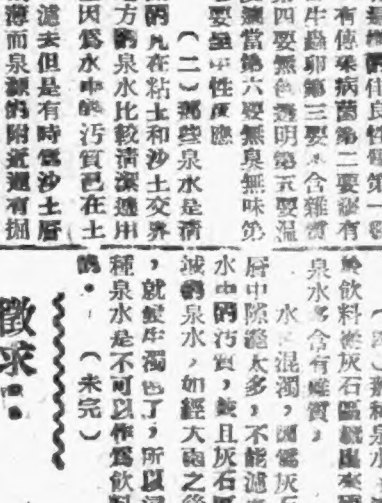 佳良性質第一要
有傳染病菌第二要沒有
蟲卵第三要 含雜質
第四要無色透明第五要温
適當第六要無臭無味第
要呈中性反應
（二）那些泉水是清
的凡在粘土和沙土交界
地方的泉水比較清潔適用
因爲水中的污質已在土
濾去但是有時爲沙土層
薄而泉源的附近還有掘
種泉水
於飲料從灰石區流出來
泉水多含有雜質，
水 混濁，因爲灰
層中隙縫太多，不能濾
水中的污質，並且灰石
域的泉水，如經大雨之後
，就變 濁 了，所以這
種泉水是不可以作爲飲料
的。（未完）
徵求